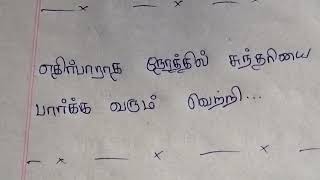 எதிர்பாராத நேரத்தில் சுந்தரியை
பார்க்க வரும் வெற்றி...